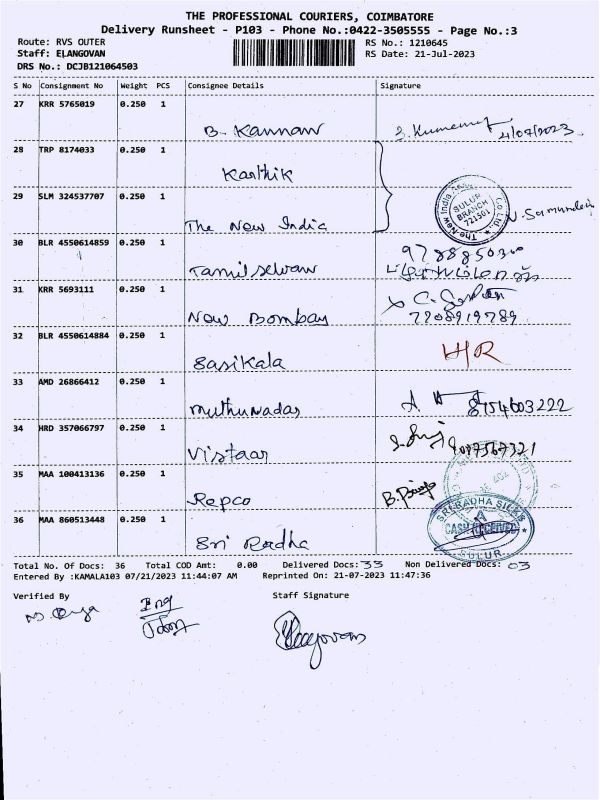 THE PROFESSIONAL COURIERS, COIMBATORE
Delivery Runsheet - P103 - Phone No.:0422-3505555 - Page No.:3
Route: RVS OUTER RS No.: 1210645
Staff: ELANGOVAN RS Date: 21-Jul-2023
DRS No.: DCJB121064503
S No Consignment No Weight PCS Consignee Details Signature
27 KRR 5765019 0.250 1
B. Kannan
28 TRP 8174033 0.250 1
Karthik
29 SLM 324537707 0.250 1
The New India
SULUR BRANCH 721501
30 BLR 4550614859 0.250 1
Tamilselvan
31 KRR 5693111 0.250 1
New Bombay 7708919789
32 BLR 4550614884 0.250 1
Sasikala H/R
33 AMD 26866412 0.250 1
Muthunadar 8754603222
34 HRD 357066797 0.250 1
Vistaar
35 MAA 100413136 0.250 1
Repco
36 MAA 860513448 0.250 1
Sri Radha
SRI RADHA SILKS
CASH RECEIVED
SULUR
Total No. Of Docs: 36 Total COD Amt: 0.00 Delivered Docs: 33 Non Delivered Docs: 03
Entered By :KAMALA103 07/21/2023 11:44:07 AM Reprinted On: 21-07-2023 11:47:36
Verified By Staff Signature
Elangovan